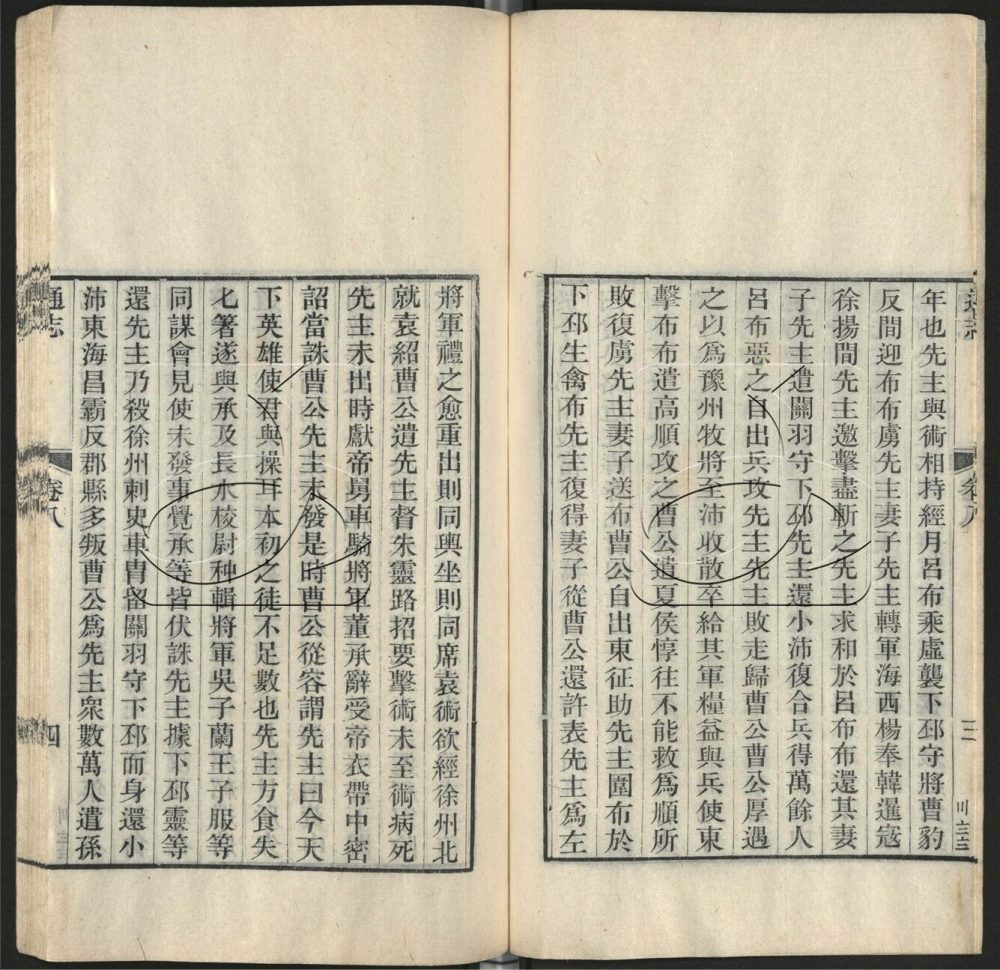 年也先主與術相持經月呂布乘虛襲下邳守將曹豹
反間迎布布虜先主妻子先主轉軍海西楊奉韓暹寇
徐揚間先主邀擊盡斬之先主求和於呂布布還其妻
子先主遣關羽守下邳先主還小沛復合兵得萬餘人
呂布惡之自出兵攻先主先主敗走歸曹公曹公厚遇
之以爲豫州牧將至沛收散卒給其軍糧益與兵使東
擊布布遣高順攻之曹公遣夏侯惇往不能救爲順所
敗復虜先主妻子送布曹公自出東征助先主圍布於
下邳生禽布先主復得妻子從曹公還許表先主爲左
卷八
三
川三三
將軍禮之愈重出則同輿坐則同席袁術欲經徐州北
就袁紹曹公遣先主督朱靈路招要擊術未至術病死
先主未出時獻帝舅車騎將軍董承辭受帝衣帶中密
詔當誅曹公先主未發是時曹公從容謂先主曰今天
下英雄使君與操耳本初之徒不足數也先主方食失
匕箸遂與承及長水校尉种輯將軍吳子蘭王子服等
同謀會見使未發事覺承等皆伏誅先主據下邳靈等
還先主乃殺徐州刺史車冑留關羽守下邳而身還小
沛東海昌霸反郡縣多叛曹公爲先主衆數萬人遣孫
通志
卷八
四